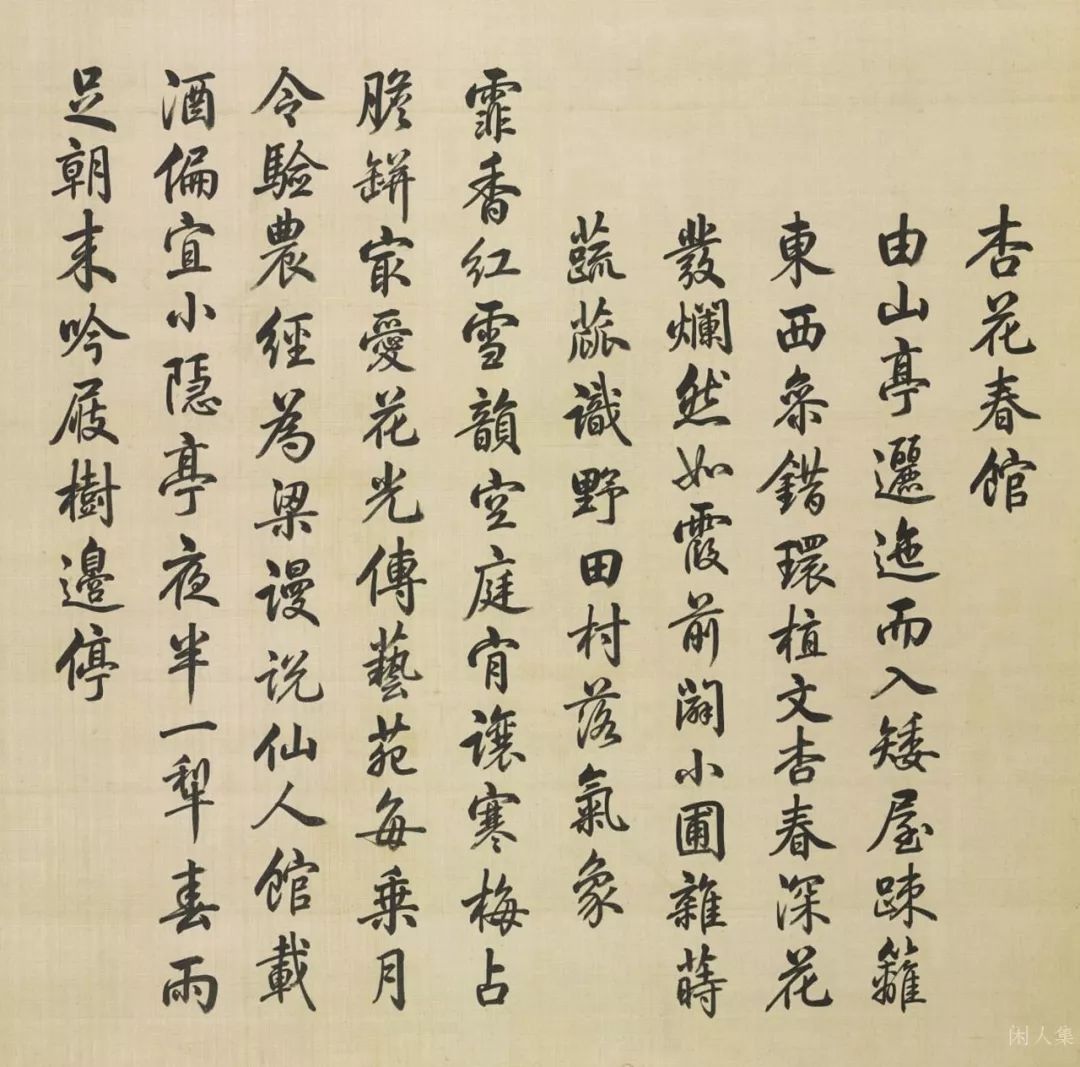 杏花春館
由山亭邐迤而入矮屋疎籬
東西叅錯環植文杏春深花
發爛然如霞前闢小圃雜蒔
蔬蓏識野田村落氣象
霏香紅雪韻空庭肎讓寒梅占
膽缾㝡愛花光傳藝苑每乗月
令驗農經為梁謾說仙人館載
酒偏宜小隱亭夜半一犁春雨
足朝来吟屐樹邊停
闲人集